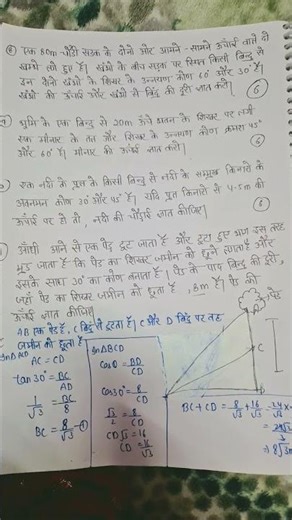 एक 80m चौड़ी सड़क के दोनों ओर आमने-सामने ऊँचाई वाले दो
खम्भे लगे हुए हैं। खंभों के बीच सड़क पर स्थित किसी बिन्दु से
इन दोनों खंभों के शिखर के उन्नयन कोण 60° और 30° हैं।
खंभों की ऊँचाई और खंभों से बिंदु की दूरी ज्ञात करो।
भूमि के एक बिन्दु से 20m ऊँचे भवन के शिखर पर लगी
एक मीनार के तल और शिखर के उन्नयन कोण क्रमशः 45°
और 60° हैं। मीनार की ऊँचाई ज्ञात करो।
एक नदी के पुल के किसी बिन्दु से नदी के सम्मुख किनारों के
अवनमन कोण 30° और 45° हैं। यदि पुल किनारों से 4.5m की
ऊँचाई पर हो तो, नदी की चौड़ाई ज्ञात कीजिए।
आँधी आने से एक पेड़ टूट जाता है और टूटा हुआ भाग इस तरह
मुड़ जाता है कि पेड़ का शिखर जमीन को छूने लगता है और
इसके साथ 30° का कोण बनाता है। पेड़ के पाद बिन्दु की दूरी,
जहाँ पेड़ का शिखर जमीन को छूता है, 8m है। पेड़ की
ऊँचाई ज्ञात कीजिए।
AB एक पेड़ है, C बिंदु से टूटता है। C और D बिंदु पर वह
जमीन को छूता है।
AC = CD
tan 30° = BC/AD
1/√3 = BC/8
BC = 8/√3 -①
In ΔBCD
cosθ = BD/CD
cos30° = 8/CD
√3/2 = 8/CD
CD√3 = 16
CD = 16/√3
A
पेड़
C
BC + CD = 8/√3 + 16/√3 = 24/√3
⇒ 8√3m